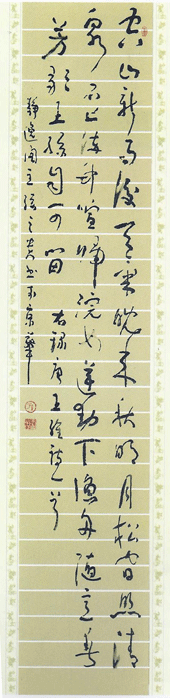 空山新雨後天氣晚来秋明月松間照清
泉石上流竹喧歸浣女蓮動下漁舟随意春
芳歇王孫自可留 右録唐王維詩一首
静逸阁主 之 书於京華